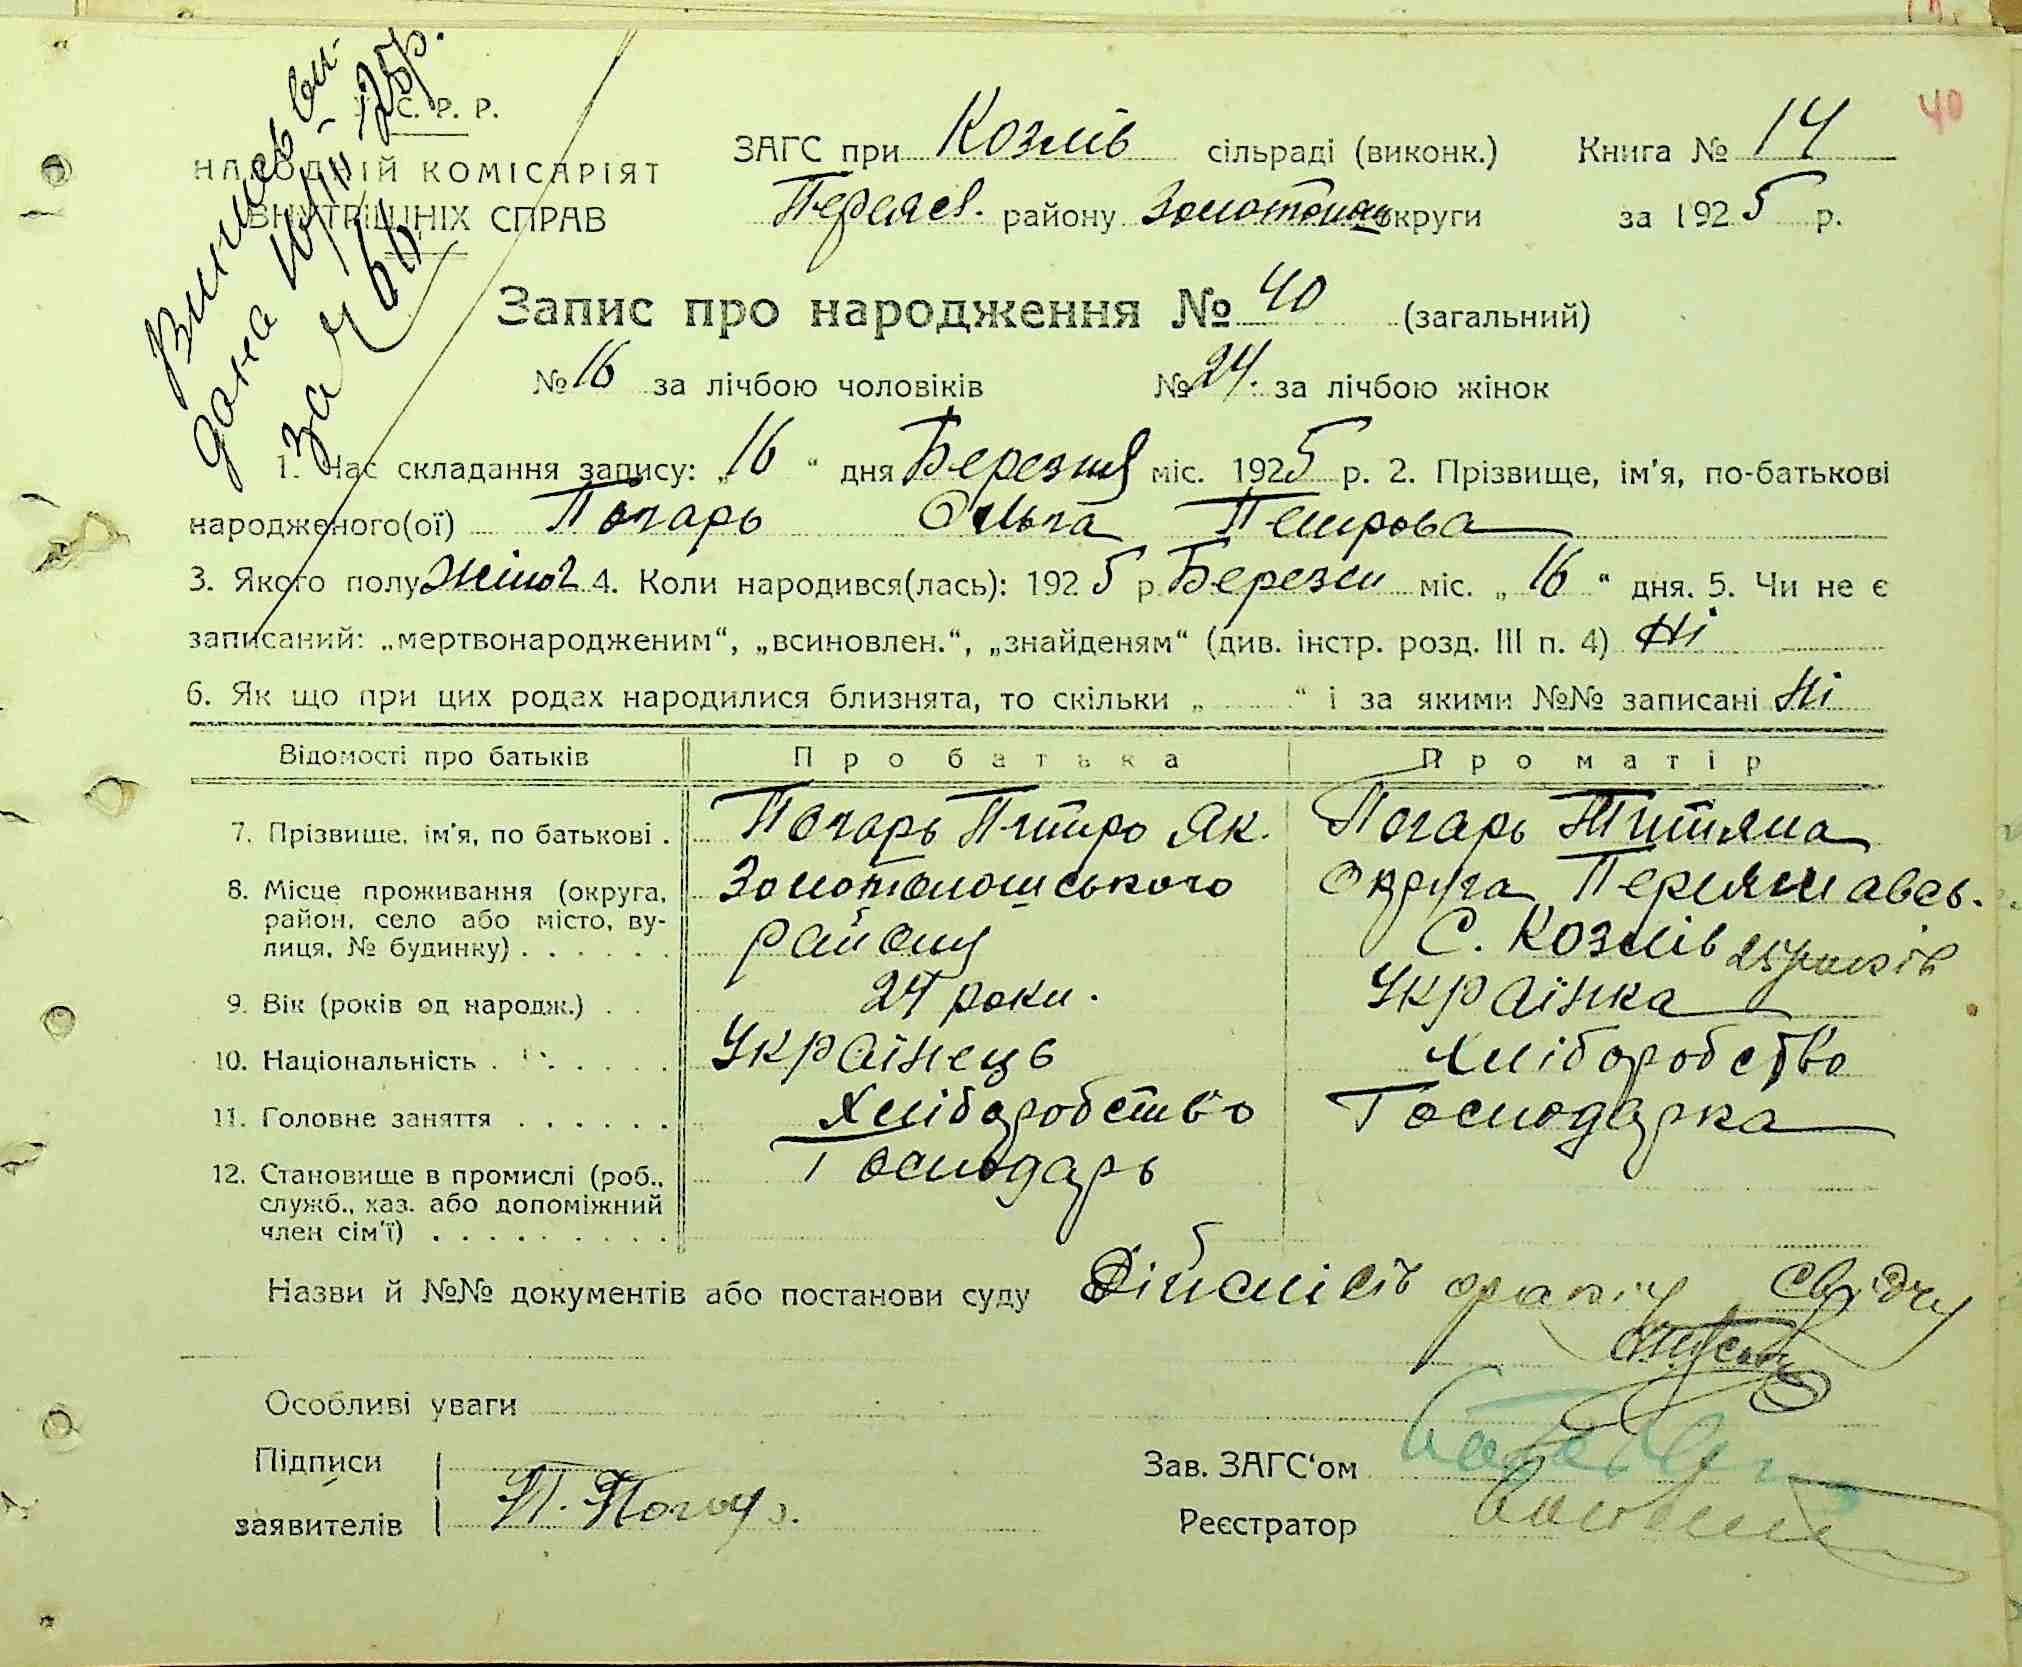 40
Випись ви-
дана 16/III-25р.
за № 60
С. Р. Р.
НАРОДНІЙ КОМІСАРІЯТ
ВНУТРІШНІХ СПРАВ
ЗАГС при Козлів сільраді (виконк.) Книга № 14
Переясл. району Золотоніськ округи за 1925 р.
Запис про народження № 40 (загальний)
№ 16 за лічбою чоловіків № 24. за лічбою жінок
1. Час складання запису: „16“ дня Березня міс. 1925 р. 2. Прізвище, ім'я, по-батькові
народженого(ої) Погарь Ольга Петрова
3. Якого полу жіноч 4. Коли народився(лась): 1925 р. Березня міс. „16“ дня. 5. Чи не є
записаний: „мертвонародженим“, „всиновлен.“, „знайденям“ (див. інстр. розд. III п. 4) Ні
6. Як що при цих родах народилися близнята, то скільки „ “ і за якими №№ записані Ні
Відомості про батьків Про батька Про матір
7. Прізвище, ім'я, по батькові . Погарь Питро Як. Погарь Титяна
8. Місце проживання (округа, район, село або місто, вулиця, № будинку) . . . . . . Золотоношського Округа Переяславсь.
району С. Козлів 25 років
9. Вік (років од народж.) . . 24 роки. Українка
10. Національність . . . . . . . Українець хліборобство
11. Головне заняття . . . . . . Хліборобство Господарка
12. Становище в промислі (роб., служб., хаз. або допоміжний член сім'ї) . . . . . . . . . Господарь
Назви й №№ документів або постанови суду Дійсність факту свідчу
Особливі уваги
Підписи
заявителів П. Погарь.
Зав. ЗАГС'ом
Реєстратор